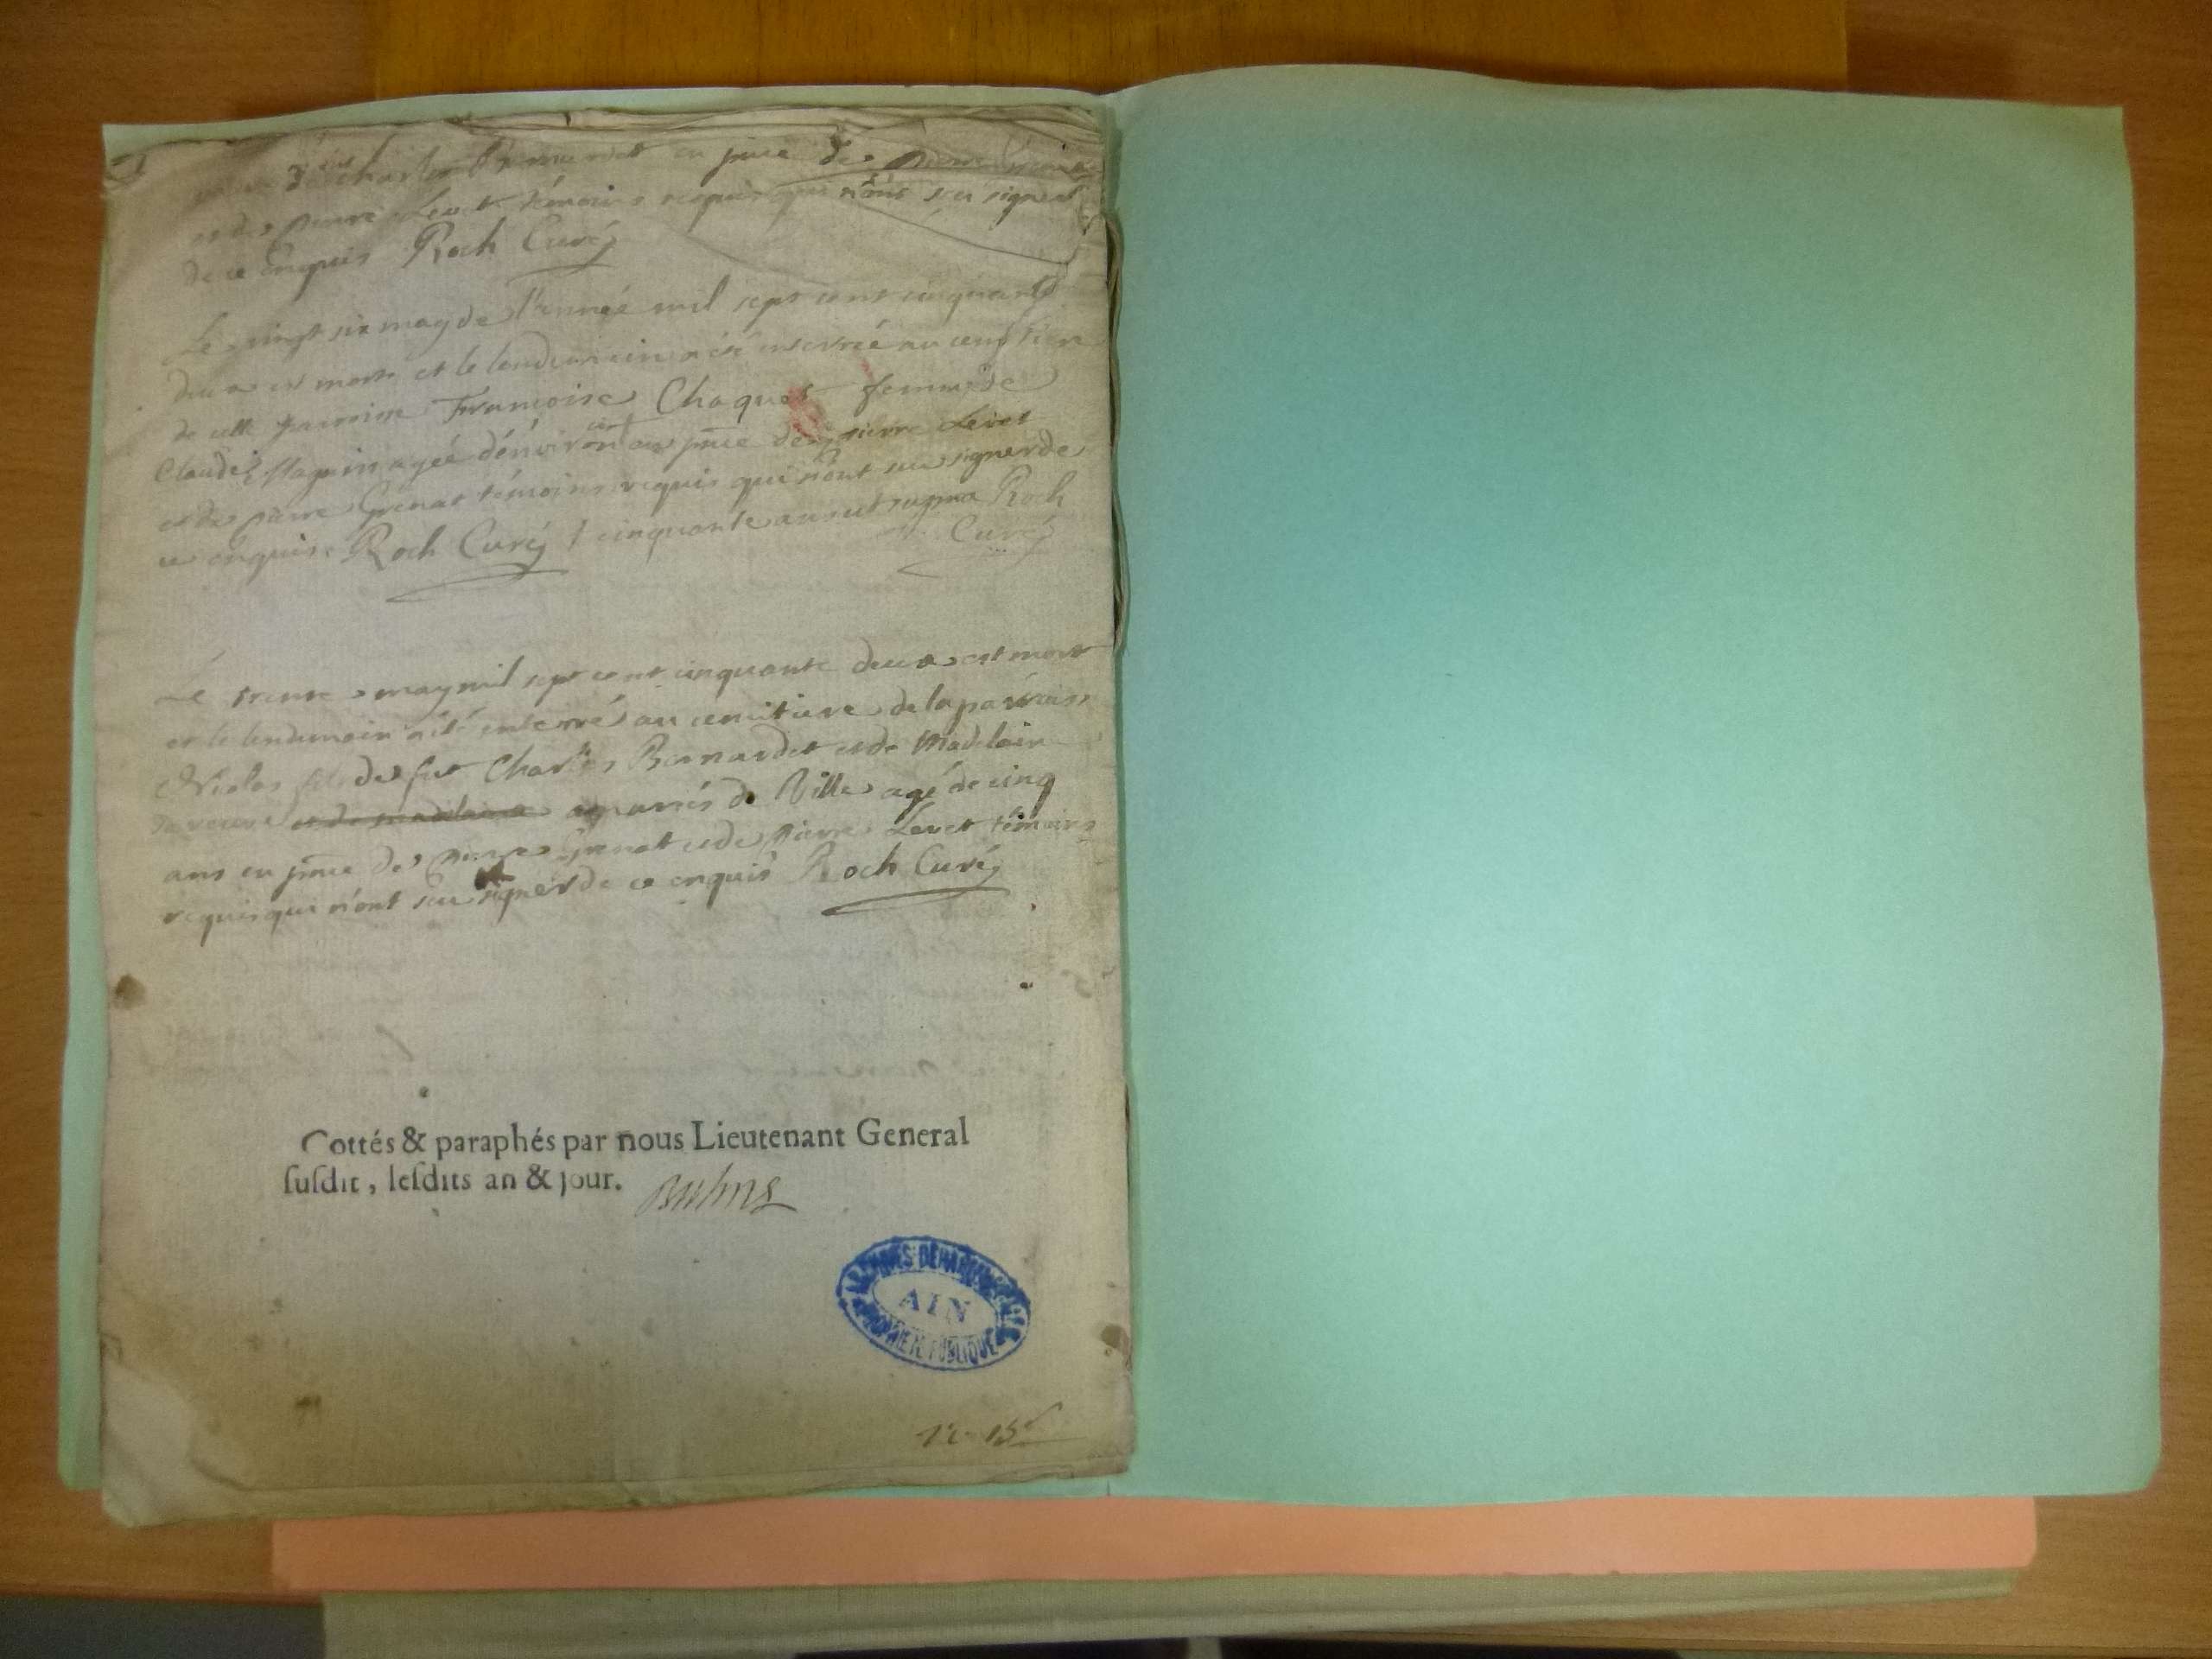 Charles en pnce de pierre
et de pierre Levet témoins requis qui n'ont sçu signer
de ce enquis Roch Curé
Le vingt six may de l'année mil sept cent cinquante
deux est morte et le lendemain a été enterrée au cemetiere
de cette parroisse Francoise Chaquet femme de
Claude agée d'environ au pnce de pierre Levet
et de pierre Grenat témoins requis qui n'ont sceu signer de
ce enquis Roch Curé / cinquante ans ut supra Roch
Curé
Le trente may mil sept cent cinquante deux est mort
et le lendemain a été enterré au cemitiere de la parroisse
Nicolas fils de feu Charles Bernardet et de Madelaine
et de madelaine de Ville agé de cinq
ans en pnce de pierre Grenat et de pierre Levet témoins
requis qui n'ont sceu signer de ce enquis Roch Curé
Cottés & paraphés par nous Lieutenant General
susdit, lesdits an & jour.
ARCHIVES DÉPARTEMENTALES
AIN
PROPRIÉTÉ PUBLIQUE